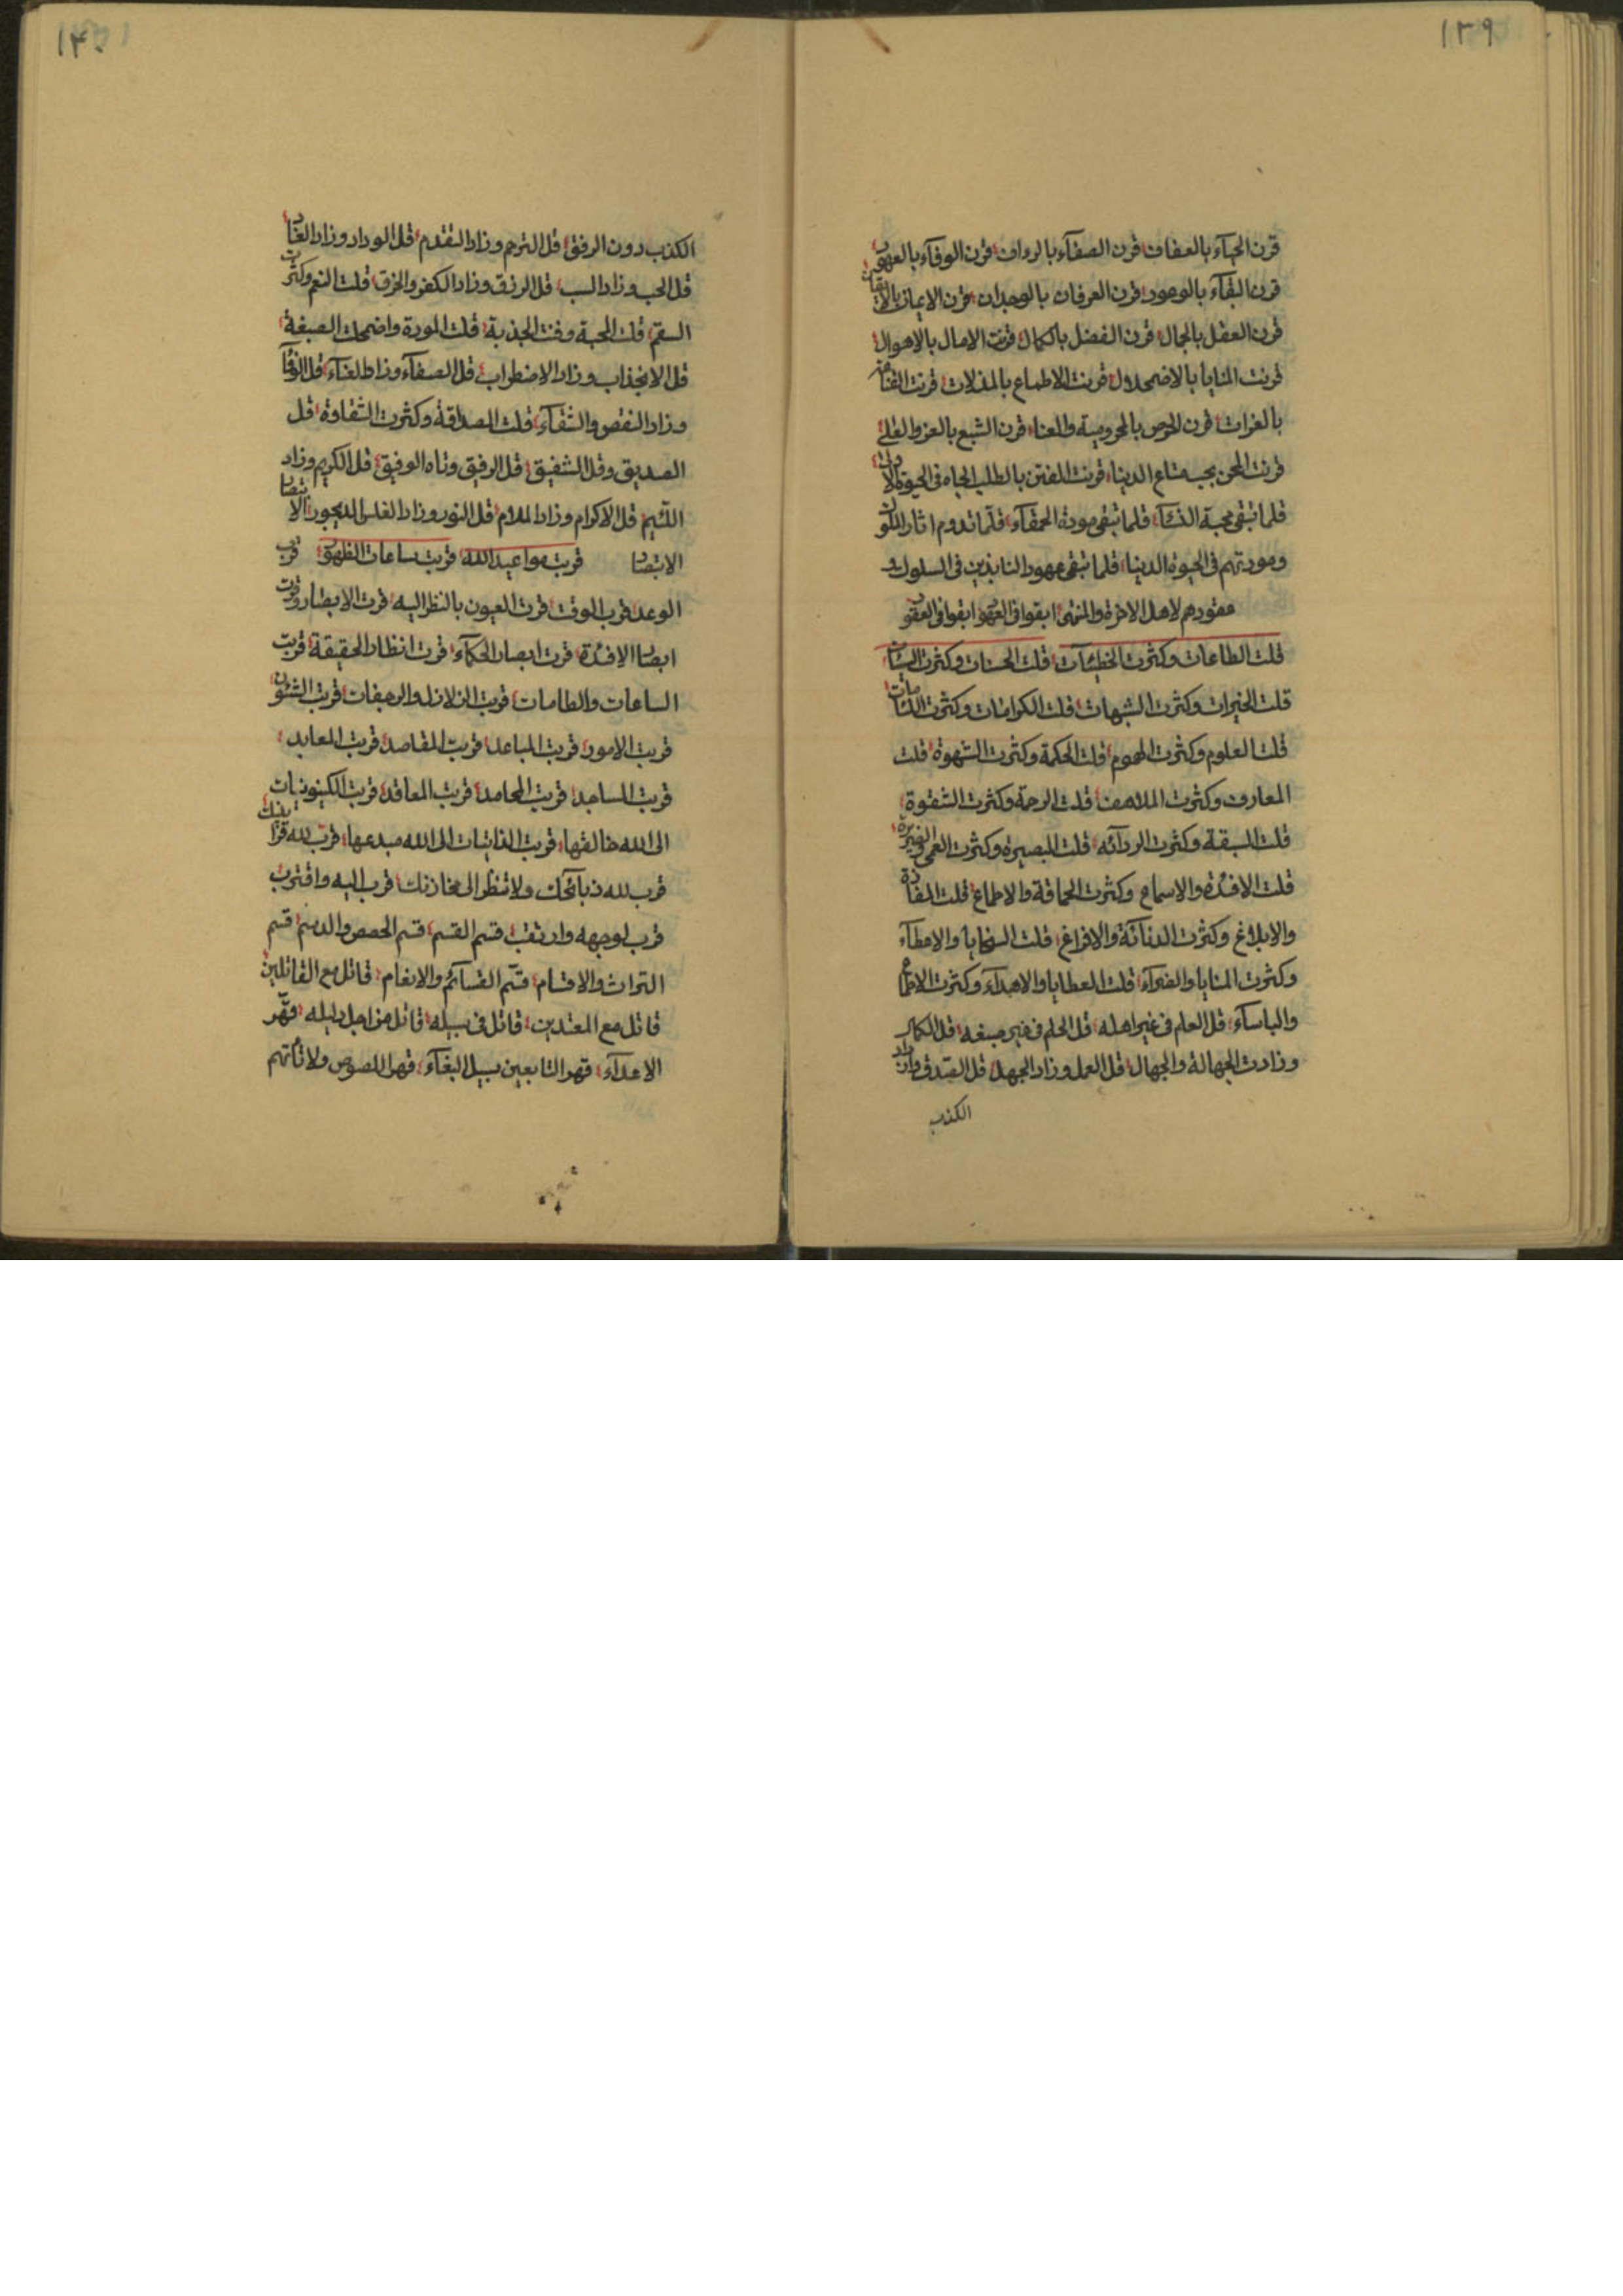 ١٣٩
قرن الحيآء بالعفاف قرن الصفآء بالرواف قرن الوفآء بالعهود
قرن البقآء بالوجود قرن العرفان بالوجدان قرن الايمان بالايقان
قرن العقل بالجمال قرن الفضل بالكمال قرنت الامال بالاهوال
قرنت المنايا بالاضمحلال قرنت الاطماع بالمذلات قرنت القناعة
بالعزات قرن الحرص بالمحرومية والعنا قرن الشبع بالعز والعلى
قرنت المحن بحب متاع الدنيا قرنت الفتن بالطلب الجاه فى الحيوة الاولى
قلما تبقى محبة قلما تبقى مودة الحمقآء قلما تدوم اثار الملوك
ومودتهم فى الحيوة الدنيا قلما تبقى عهود النابذين فى السلوك و
عقودهم لاهل الاخرة والمنتهى ابقوا فى العهود ابقوا فى العقود
قلت الطاعات وكثرت الخطيئات قلت الحسنات وكثرت السيئات
قلت الخيرات وكثرت الشبهات قلت الكرامات وكثرت
قلت العلوم وكثرت الهموم قلت الحكمة وكثرت الشهوة قلت
المعارف وكثرت الملاهف قلت الرحمة وكثرت الشقوة
قلت السبقة وكثرت الردآئه قلت البصيرة وكثرت العمى
قلت الافئدة والاسماع وكثرت الحماقة والاطماع قلت
والابلاغ وكثرت الدنآئة والافراغ قلت السخايا والاعطآء
وكثرت المنايا والضرآء قلت العطايا والاهدآء وكثرت
والباسآء قل العلم فى غير اهله قل الحلم فى غير صبغه قل الكمال
وزادت الجهالة والجهال قل العمل وزاد الجهل قل الصدق وزاد
الكذب
١٤٠
الكذب دون الرفق قل الترحم وزاد التقدم قل الوداد وزاد العناد
قل الحب وزاد السب قل الرتق وزاد الكفر والخرق قلت النعم وكثرت
السقم قلت المحبة وفنت الجذبة قلت المودة واضمحلت الصبغة
قل الانجذاب وزاد الاضطراب قل الصفآء وزاد قل الوفآء
وزاد النقص والشقآء قلت الصداقة وكثرت الشقاوة قل
الصديق وقل الشفيق قل الرفيق وتاه الوفيق قل الكريم وزاد
اللئيم قل الاكرام وزاد الملام قل النور وزاد الغلس الديجور
قربت مواعيد الله قربت ساعات الظهور قرب
الوعد قرب الوقت قرت العيون بالنظر اليه قرت الابصار وقرت
ابصار الافئدة قرت ابصار الحكمآء قرت انظار الحقيقة قربت
الساعات والطامات قربت الزلازل والرجفات قربت الشئون
قربت الامور قربت المباعد قربت المقاصد قربت المعابد
قربت المساجد قربت المحامد قربت المعاقد قربت الكينونيات
الى الله خالقها قربت الذاتيات الى الله مبدعها قرب لله قرابينك
قرب لله ذبآئحك ولا تنظر الى مخازنك قرب اليه واقترب
قرب لوجهه وارتقب قسم القسم قسم الحصص والدسم قسم
التراث والاقسام قسم القسآئم والانعام قاتل مع القاتلين
قاتل مع المعتدين قاتل فى سبيله قاتل من اجل دليله قهر
الاعدآء قهر التابعين سبيل البغآء قهر اللصوص ولا تأتهم